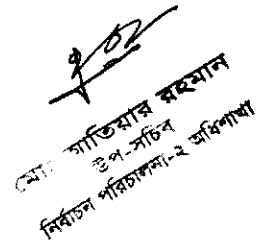 মোঃ আতিয়ার রহমান
উপ-সচিব
নির্বাচন পরিচালনা-২ অধিশাখা